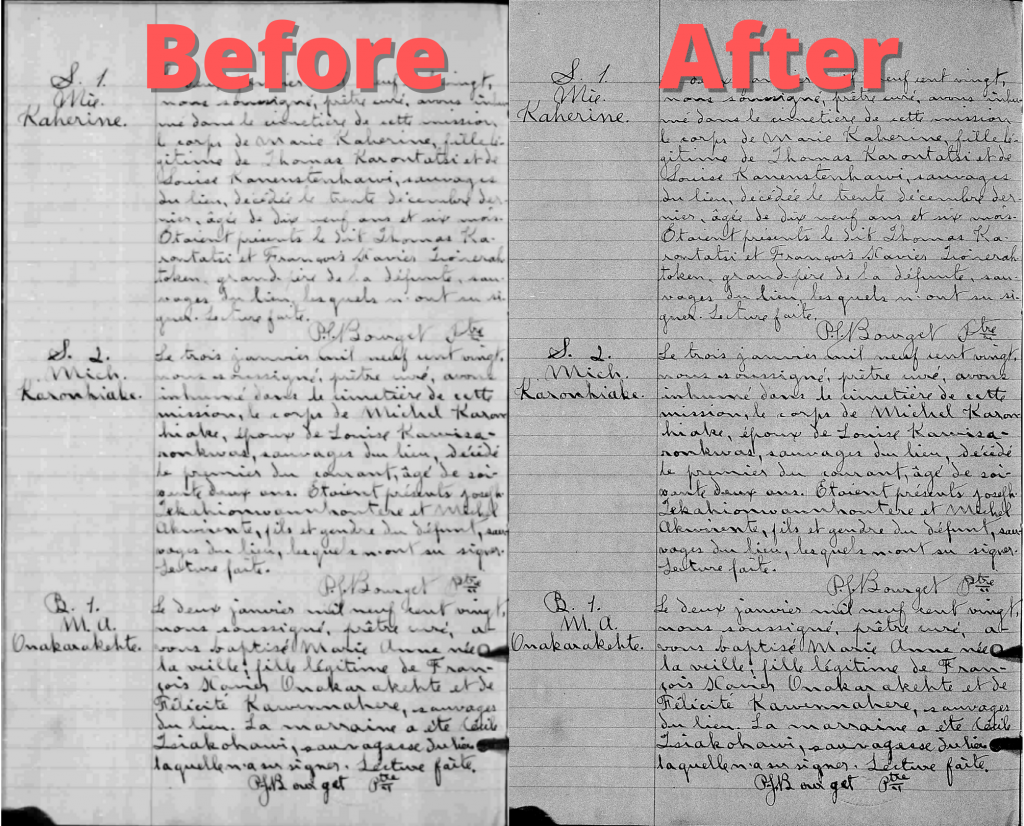 Before
S. 1.
Mie.
Kaherine.
nous soussigné, prêtre curé, avons inhu
mé dans le cimetière de cette mission
le corps de Marie Kaherine, fille lé-
gitime de Thomas Karontatsi et de
Louise Kanenstenhawi, sauvages
du lieu, décédée le trente décembre der-
nier, âgée de dix neuf ans et six mois.
Étaient présents le dit Thomas Ka-
rontatsi et François Xavier
token, grand-père de la défunte, sau-
vages du lieu, lesquels n'ont su si-
gner. Lecture faite.
P.J. Bourget Ptre
S. 2.
Mich.
Karonhiake.
Le trois janvier mil neuf cent vingt,
nous soussigné, prêtre curé, avons
inhumé dans le cimetière de cette
mission, le corps de Michel Karon
hiake, époux de Louise Kawisa-
ronkwas, sauvages du lieu, décédé
le premier du courant, âgé de soi-
xante deux ans. Étaient présents Joseph
et Michel
Akwirente, fils et gendre du défunt, sau
vages du lieu, lesquels n'ont su signer.
Lecture faite.
P.J. Bourget Ptre
B. 1.
M. A.
Onakarakehte.
Le deux janvier mil neuf cent vingt,
nous soussigné, prêtre curé, a-
vons baptisé Marie Anne née
la veille, fille légitime de Fran-
çois Xavier Onakarakehte et de
Félicité Kawennahere, sauvages
du lieu. La marraine a été Cécile
Tsiakohawi, sauvagesse du lieu
laquelle n'a su signer. Lecture faite.
P.J. Bourget Ptre
After
S. 1.
Mie.
Kaherine.
neuf cent vingt,
nous soussigné, prêtre curé, avons inhu
mé dans le cimetière de cette mission
le corps de Marie Kaherine, fille lé-
gitime de Thomas Karontatsi et de
Louise Kanenstenhawi, sauvages
du lieu, décédée le trente décembre der-
nier, âgée de dix neuf ans et six mois.
Étaient présents le dit Thomas Ka-
rontatsi et François Xavier
token, grand-père de la défunte, sau-
vages du lieu, lesquels n'ont su si-
gner. Lecture faite.
P.J. Bourget Ptre
S. 2.
Mich.
Karonhiake.
Le trois janvier mil neuf cent vingt,
nous soussigné, prêtre curé, avons
inhumé dans le cimetière de cette
mission, le corps de Michel Karon
hiake, époux de Louise Kawisa-
ronkwas, sauvages du lieu, décédé
le premier du courant, âgé de soi-
xante deux ans. Étaient présents Joseph
et Michel
Akwirente, fils et gendre du défunt, sau
vages du lieu, lesquels n'ont su signer.
Lecture faite.
P.J. Bourget Ptre
B. 1.
M. A.
Onakarakehte.
Le deux janvier mil neuf cent vingt,
nous soussigné, prêtre curé, a-
vons baptisé Marie Anne née
la veille, fille légitime de Fran-
çois Xavier Onakarakehte et de
Félicité Kawennahere, sauvages
du lieu. La marraine a été Cécile
Tsiakohawi, sauvagesse du lieu
laquelle n'a su signer. Lecture faite.
P.J. Bourget Ptre